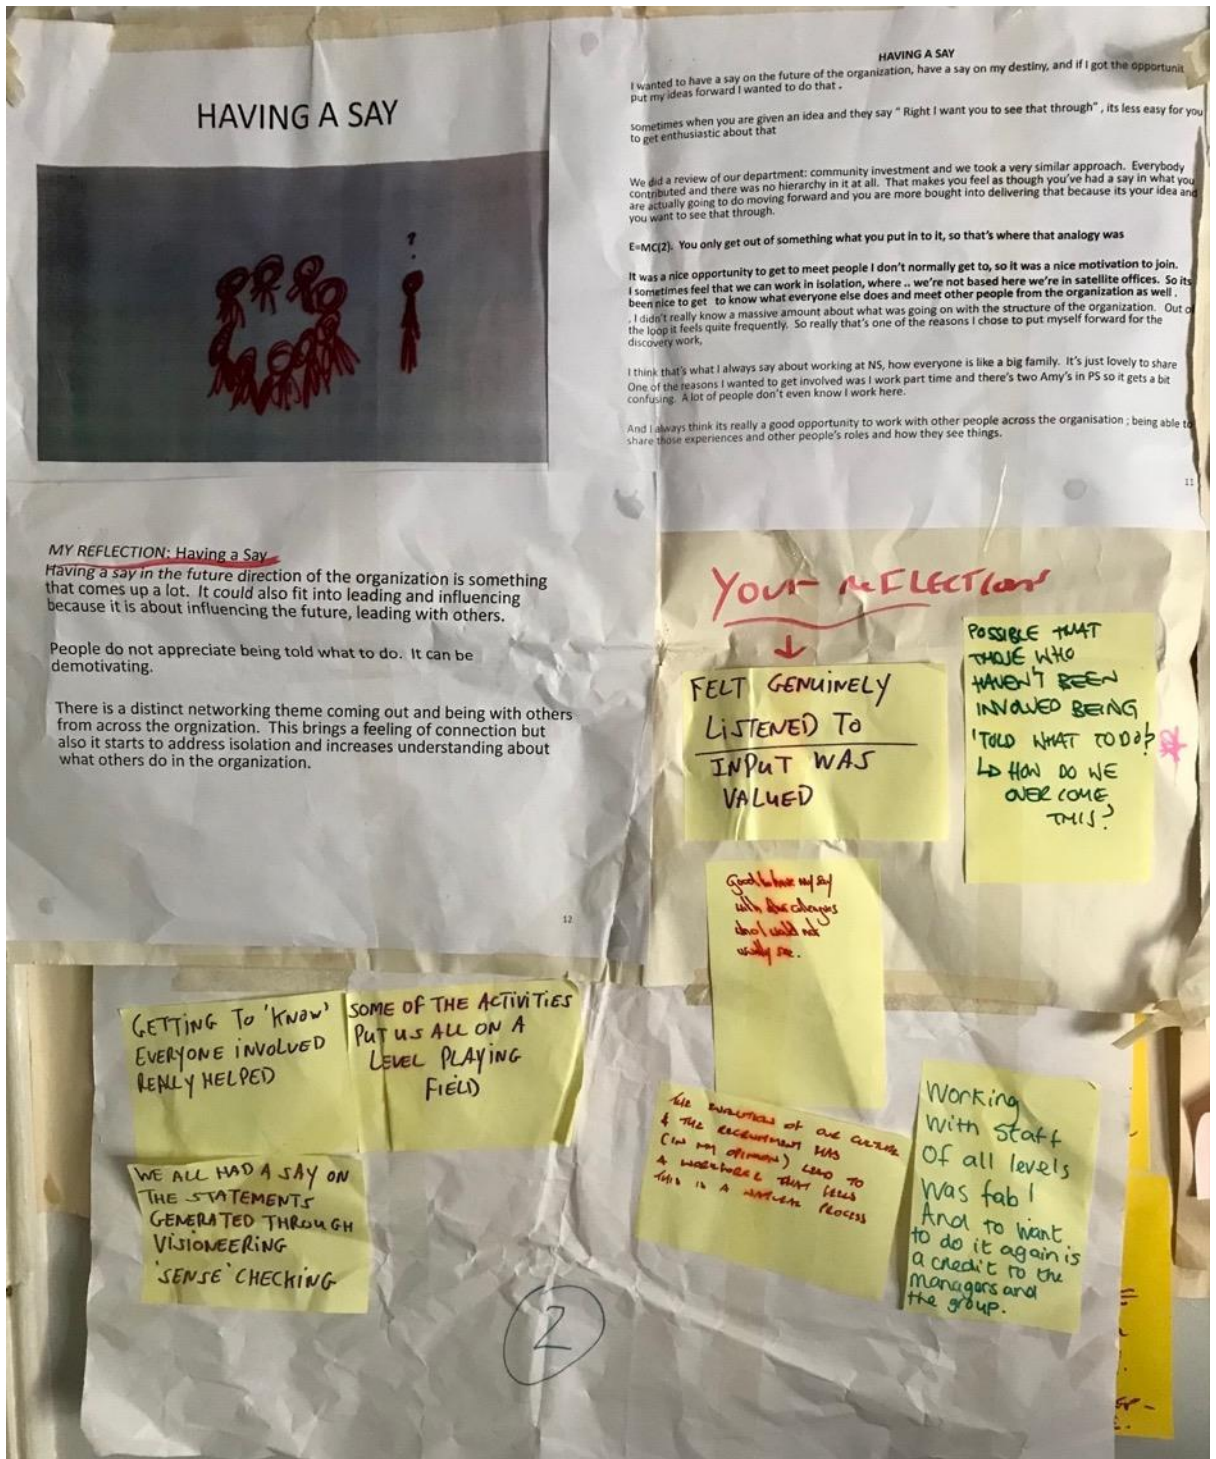 HAVING A SAY
?
HAVING A SAY
I wanted to have a say on the future of the organization, have a say on my destiny, and if I got the opportunit
put my ideas forward I wanted to do that .
sometimes when you are given an idea and they say " Right I want you to see that through" , its less easy for you
to get enthusiastic about that
We did a review of our department: community investment and we took a very similar approach. Everybody
contributed and there was no hierarchy in it at all. That makes you feel as though you've had a say in what you
are actually going to do moving forward and you are more bought into delivering that because its your idea and
you want to see that through.
E=MC(2). You only get out of something what you put in to it, so that's where that analogy was
It was a nice opportunity to get to meet people I don't normally get to, so it was a nice motivation to join.
I sometimes feel that we can work in isolation, where .. we're not based here we're in satellite offices. So its
been nice to get to know what everyone else does and meet other people from the organization as well .
. I didn't really know a massive amount about what was going on with the structure of the organization. Out of
the loop it feels quite frequently. So really that's one of the reasons I chose to put myself forward for the
discovery work,
I think that's what I always say about working at NS, how everyone is like a big family. It's just lovely to share
One of the reasons I wanted to get involved was I work part time and there's two Amy's in PS so it gets a bit
confusing. A lot of people don't even know I work here.
And I always think its really a good opportunity to work with other people across the organisation ; being able to
share those experiences and other people's roles and how they see things.
11
MY REFLECTION: Having a Say
Having a say in the future direction of the organization is something
that comes up a lot. It could also fit into leading and influencing
because it is about influencing the future, leading with others.
People do not appreciate being told what to do. It can be
demotivating.
There is a distinct networking theme coming out and being with others
from across the orgnization. This brings a feeling of connection but
also it starts to address isolation and increases understanding about
what others do in the organization.
12
YOUR REFLECTION
FELT GENUINELY
LISTENED TO
INPUT WAS
VALUED
POSSIBLE THAT
THOSE WHO
HAVEN'T BEEN
INVOLVED BEING
'TOLD WHAT TO DO?'
HOW DO WE
OVERCOME
THIS?
Good to have my say
with colleagues
who I would not
usually see.
GETTING TO 'KNOW'
EVERYONE INVOLVED
REALLY HELPED
SOME OF THE ACTIVITIES
PUT US ALL ON A
LEVEL PLAYING
FIELD
WE ALL HAD A SAY ON
THE STATEMENTS
GENERATED THROUGH
VISIONEERING
'SENSE' CHECKING
THE EVOLUTION OF OUR CULTURE
& THE RECRUITMENT HAS
(IN MY OPINION) LEAD TO
A WORKFORCE THAT FEELS
THIS IS A NATURAL PROCESS
Working
with staff
of all levels
was fab!
And to want
to do it again is
a credit to the
managers and
the group.
2